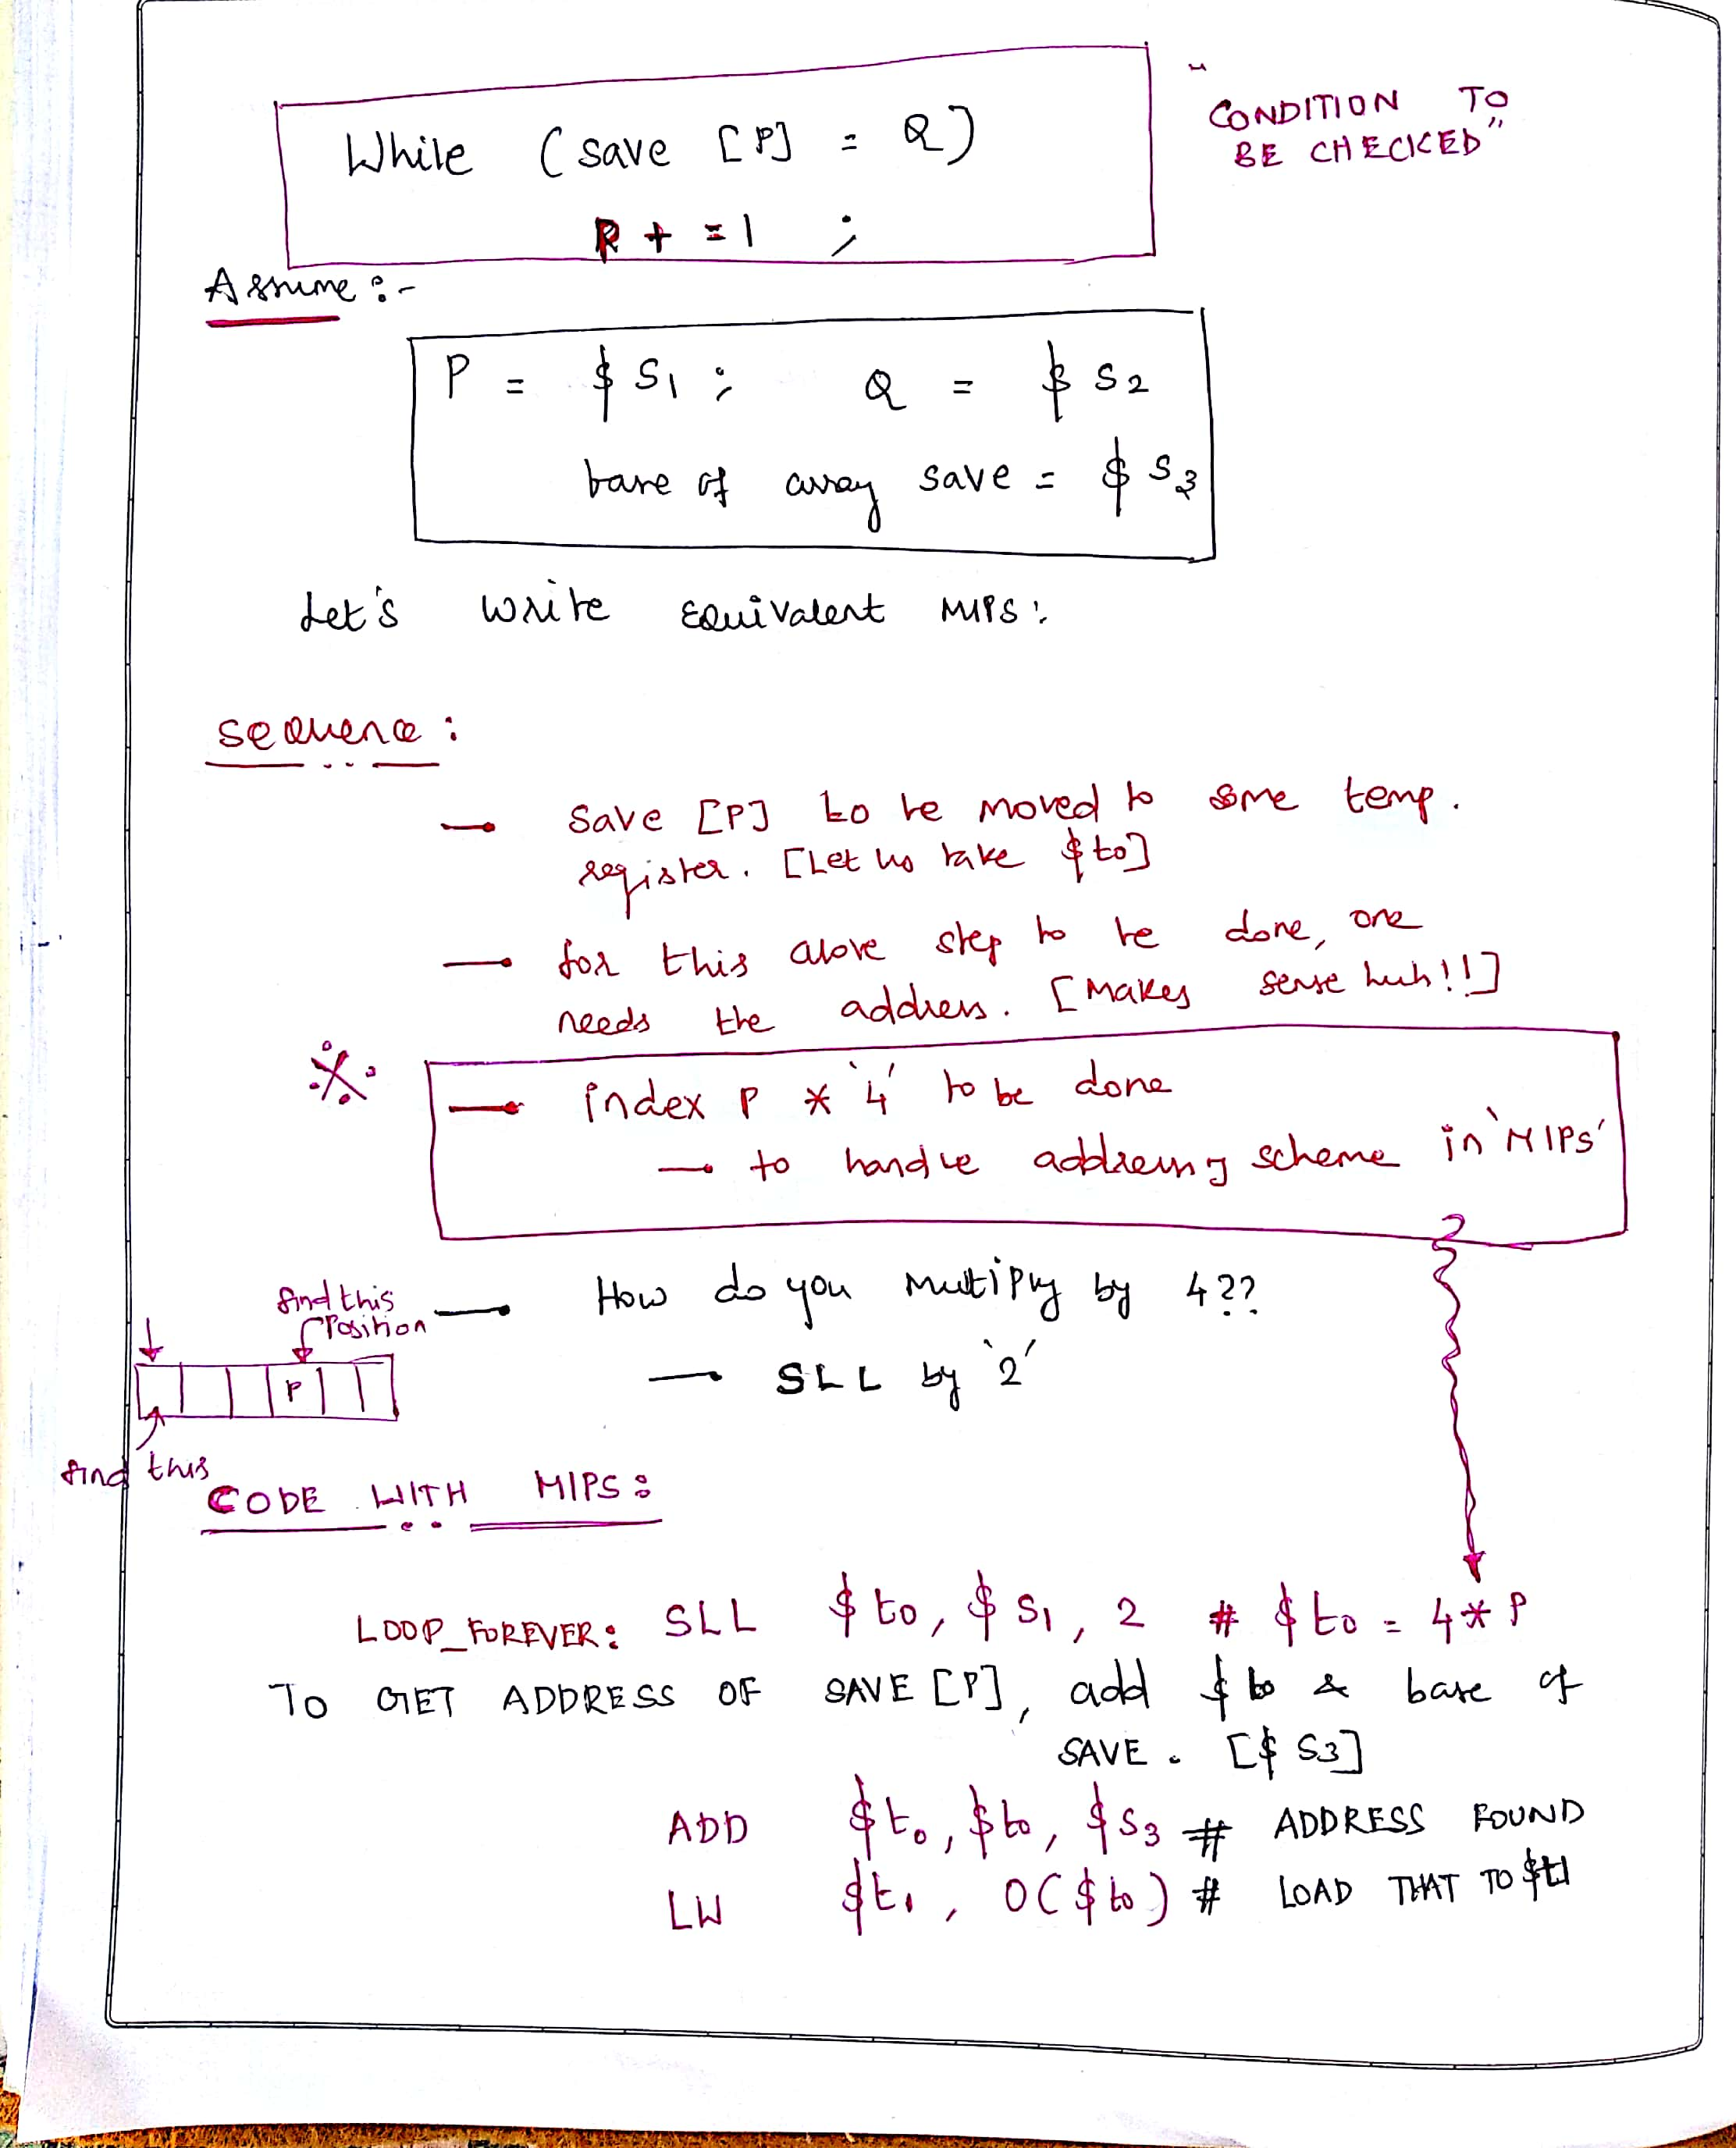 While (save [P] = Q)
P + = 1 ;
"CONDITION TO
BE CHECKED"
Assume :-
P = $ S1 ; Q = $ S2
base of array save = $ S3
Let's write Equivalent MIPS :
sequence :
— Save [P] to be moved to some temp.
register. [Let us take $t0]
— for this above step to be done, one
needs the address. [Makes sense huh!!]
— index P * '4' to be done
— to handle addressing scheme in 'MIPS'
— How do you Multiply by 4??
— SLL by '2'
find this
Position
P
find this
CODE WITH MIPS :
LOOP_FOREVER: SLL $t0, $S1, 2 # $t0 = 4 * P
TO GET ADDRESS OF SAVE [P], add $t0 & base of
SAVE. [$ S3]
ADD $t0, $t0, $S3 # ADDRESS FOUND
LW $t1, 0($t0) # LOAD THAT TO $t1